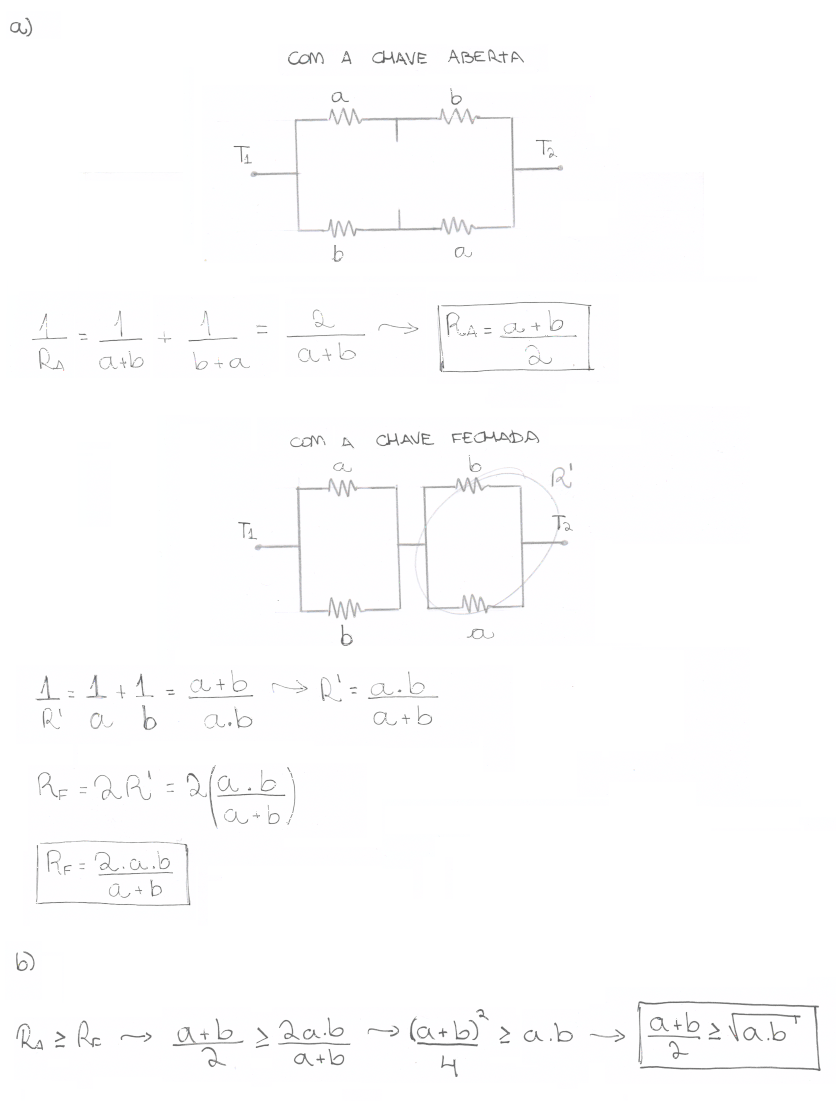 a)
COM A CHAVE ABERTA
a b
T₁ T₂
b a
1/R_A = 1/(a+b) + 1/(b+a) = 2/(a+b) ⤳ R_A = (a+b)/2
COM A CHAVE FECHADA
a b R'
T₁ T₂
b a
1/R' = 1/a + 1/b = (a+b)/(a.b) ⤳ R' = (a.b)/(a+b)
R_F = 2R' = 2((a.b)/(a+b))
R_F = (2.a.b)/(a+b)
b)
R_A ≥ R_F ⤳ (a+b)/2 ≥ (2a.b)/(a+b) ⤳ (a+b)²/4 ≥ a.b ⤳ (a+b)/2 ≥ √(a.b)